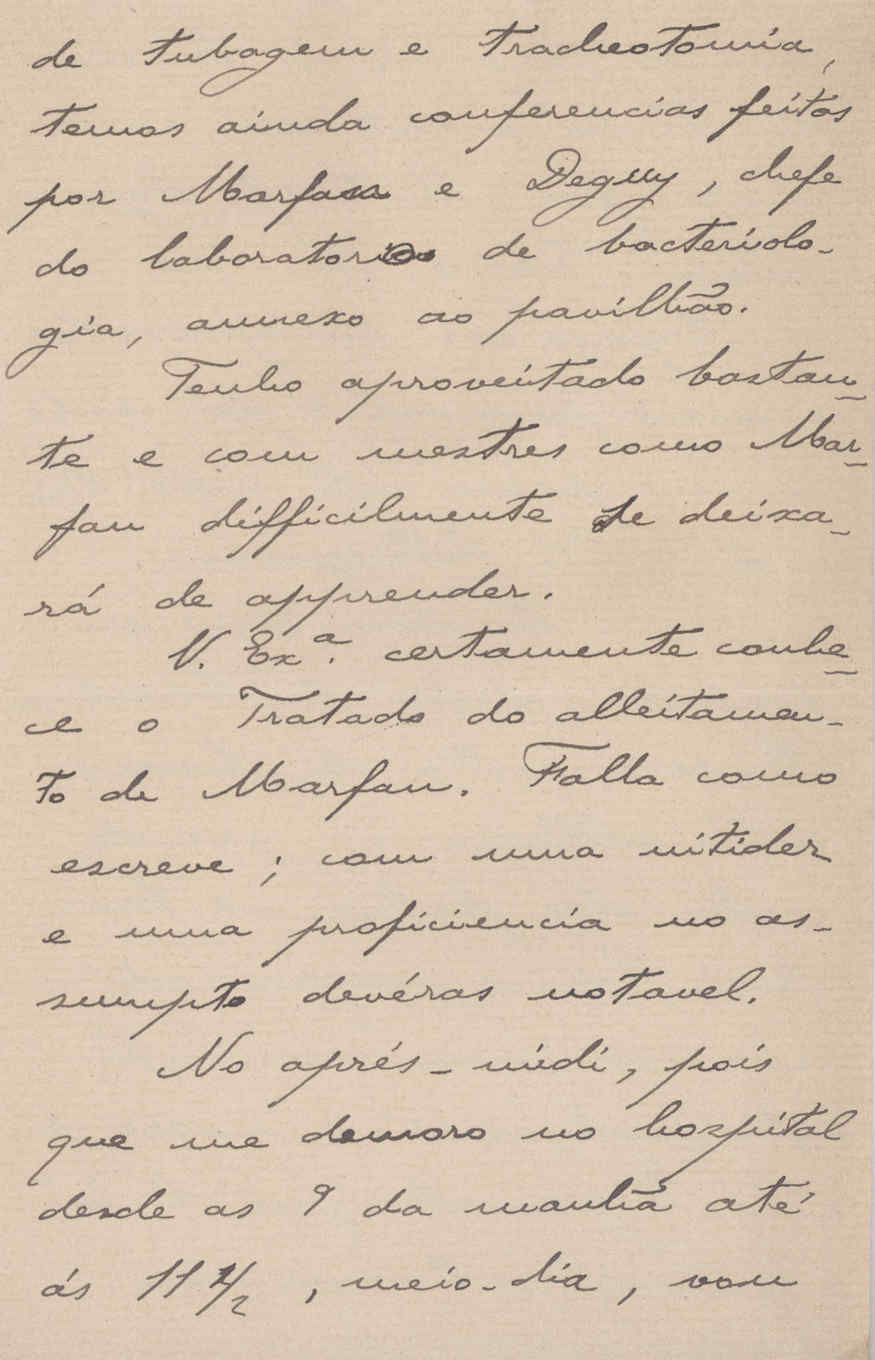 de tubagem e tracheotomia,
temos ainda conferencias feitas
por Marfan e Deguy, chefe
do laboratorio de bacteriolo-
gia, annexo ao pavilhão.
Tenho aproveitado bastan-
te e com mestres como Mar-
fan difficilmente se deixa-
rá de apprender.
V. Exª. certamente conhe-
ce o Tratado do alleitamen-
to de Marfan. Falla como
escreve; com uma nitidez
e uma proficiencia no as-
sumpto devéras notavel.
No aprés-midi, pois
que me demoro no hospital
desde as 9 da manhã até
ás 11 1/2, meio-dia, vou